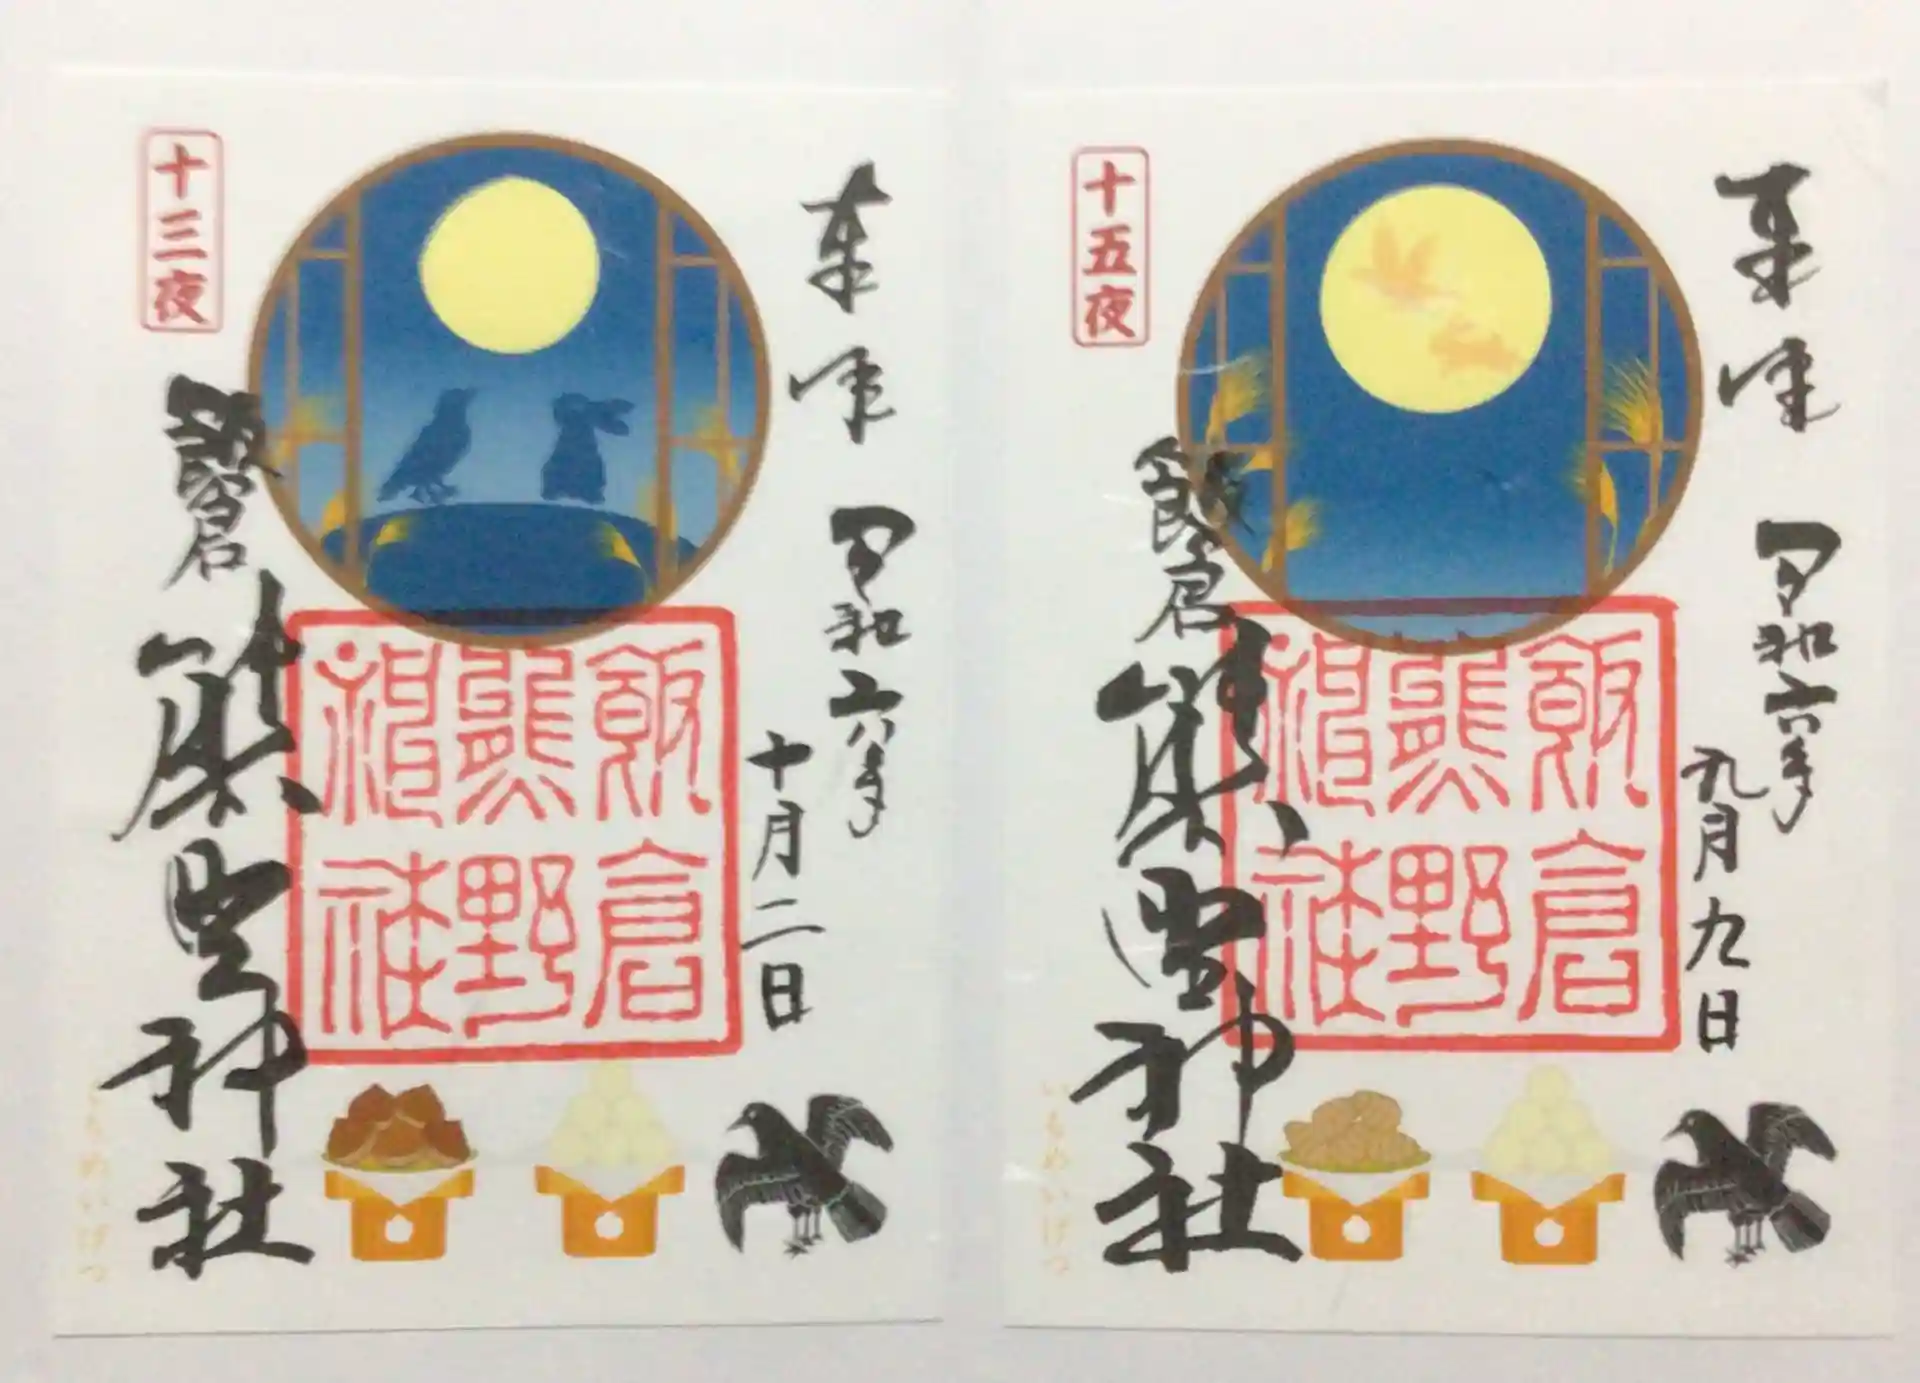 十三夜
奉拝
令和六年
十月二日
飯倉
熊野神社
飯倉
熊野
神社
いもめいげつ
十五夜
奉拝
令和六年
九月九日
飯倉
熊野神社
飯倉
熊野
神社
いもめいげつ